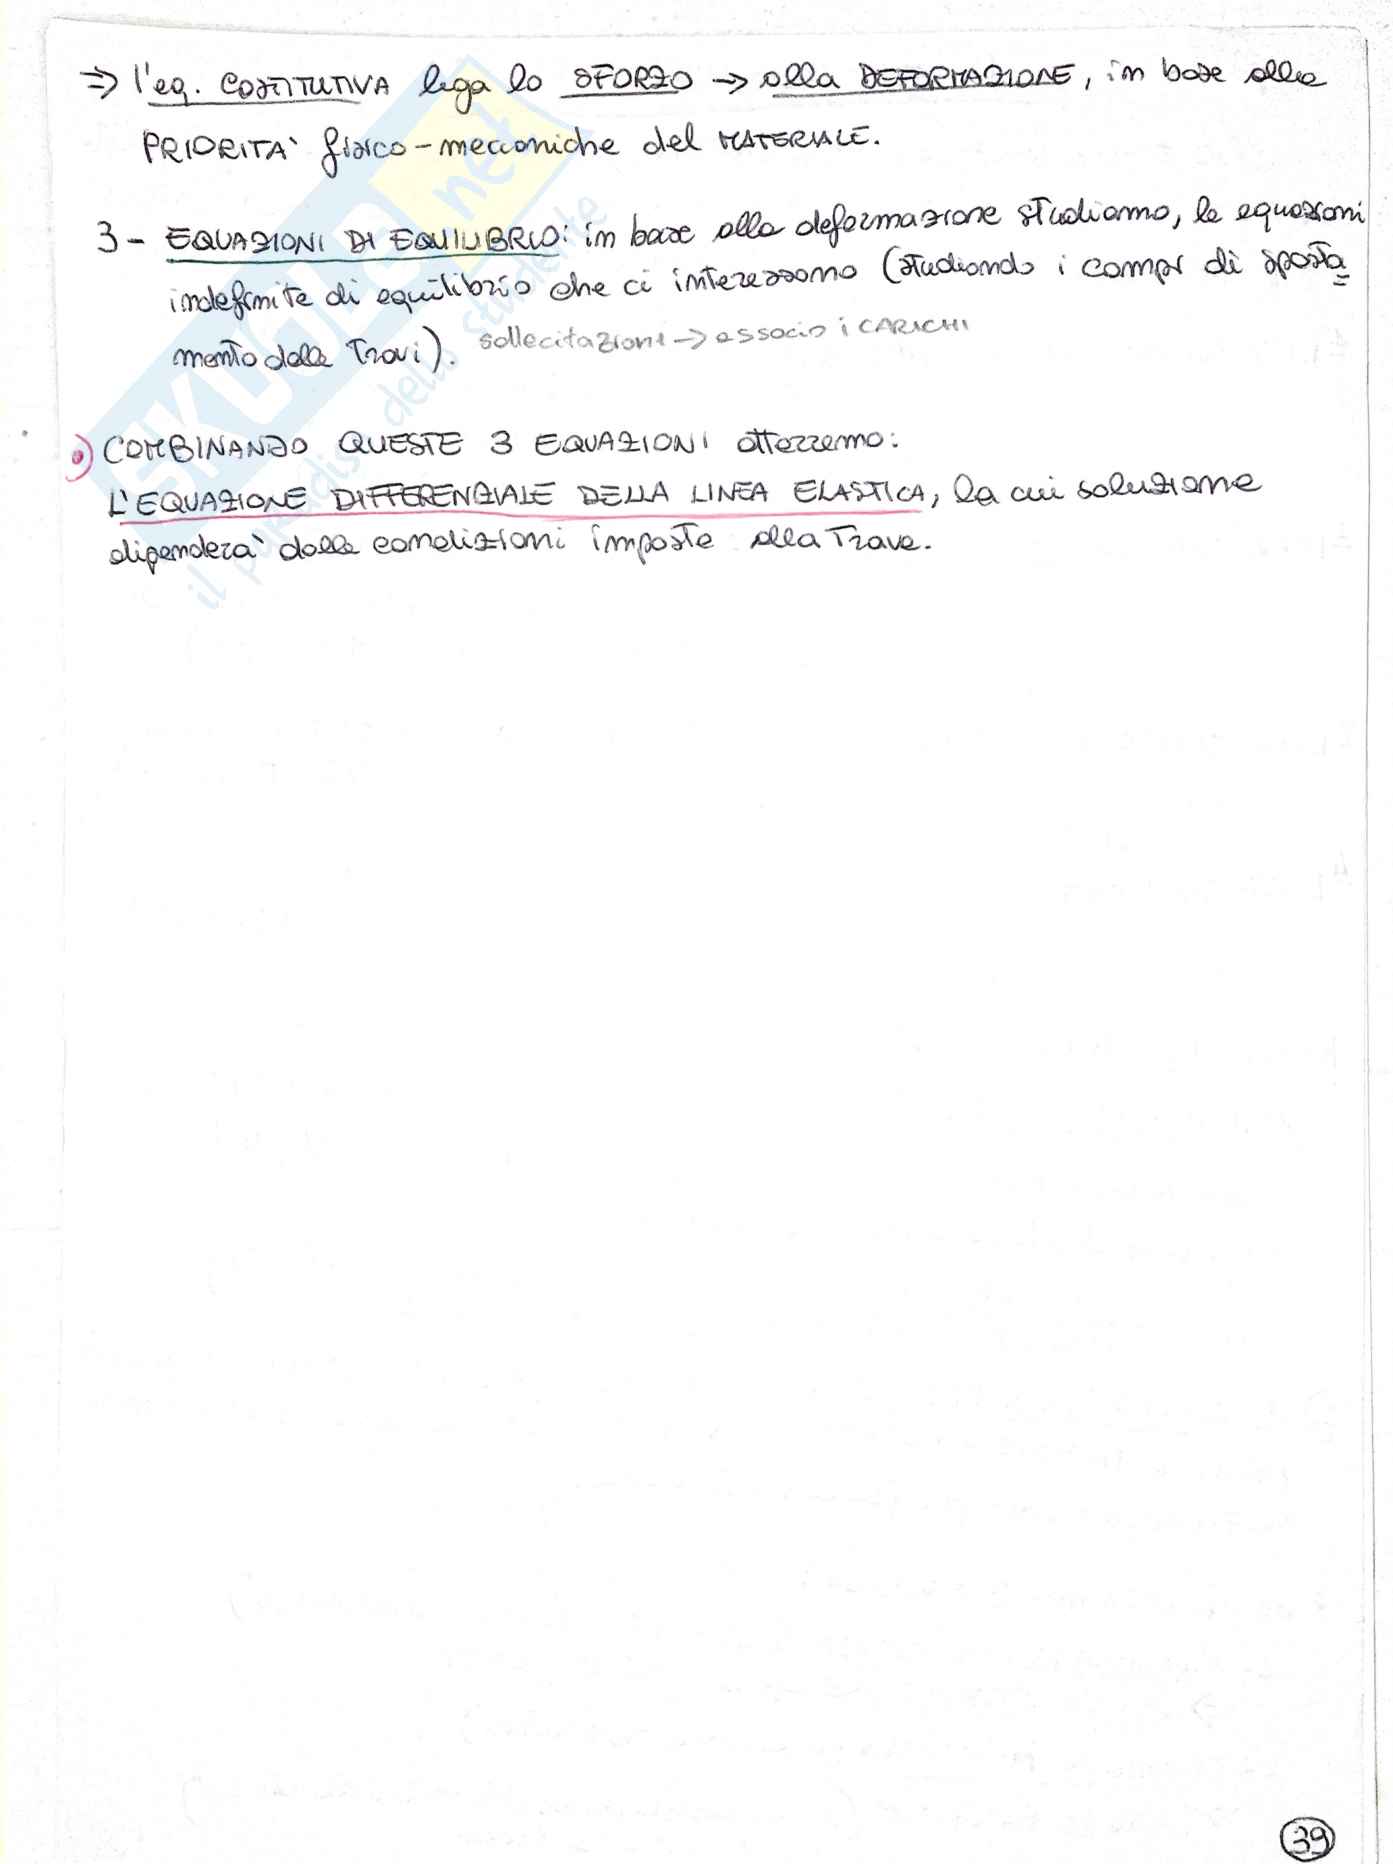 ⇒ l'eq. COSTITUTIVA lega lo SFORZO → alla DEFORMAZIONE, in base alle
PRIORITA' fisico-meccaniche del MATERIALE.
3- EQUAZIONI DI EQUILIBRIO: in base alla deformazione studiamo, le equazioni
indefinite di equilibrio che ci interessano (studiando i campi di sposta=
mento delle Travi). sollecitazioni → associo i CARICHI
•) COMBINANDO QUESTE 3 EQUAZIONI otterremo:
L'EQUAZIONE DIFFERENZIALE DELLA LINEA ELASTICA, la cui soluzione
dipenderà dalle condizioni imposte alla Trave.
SKUOLA.net
il paradiso dello studente
39